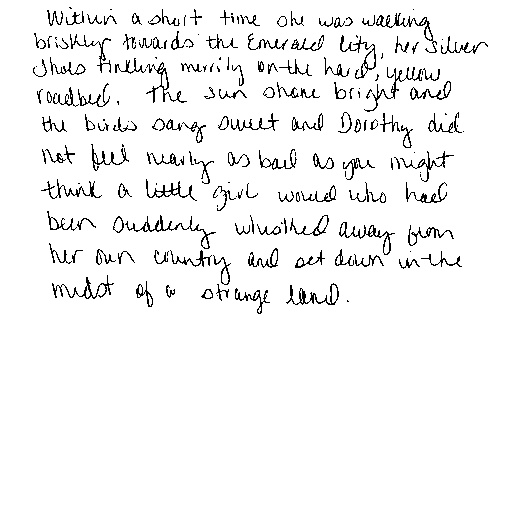 Within a short time she was walking
briskly towards the Emerald City, her Silver
Shoes tinkling merrily on the hard, yellow
roadbed. The sun shone bright and
the birds sang sweet and Dorothy did
not feel nearly as bad as you might
think a little girl would who had
been suddenly whisked away from
her own country and set down in the
midst of a strange land.